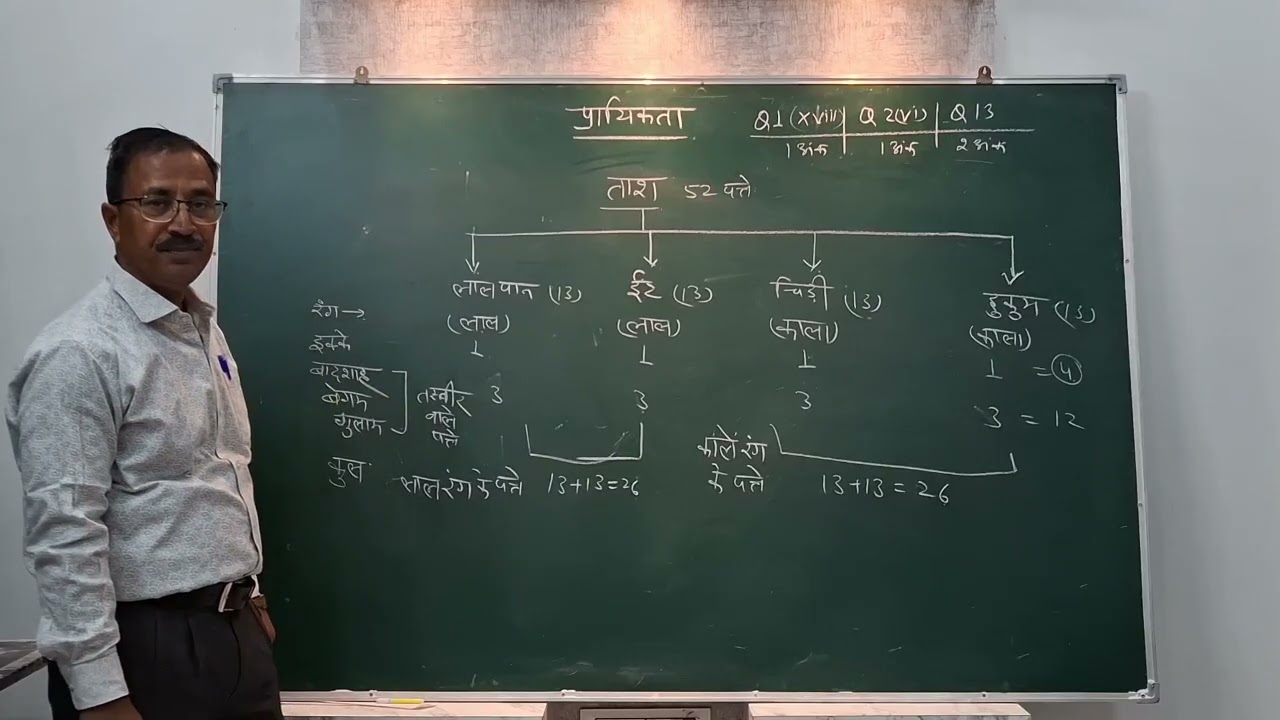 प्रायिकता Q1(xviii) Q2(vi) Q13
1 अंक 1 अंक 2 अंक
ताश 52 पत्ते
लाल पान (13) ईंट (13) चिड़ी (13) हुकुम (13)
रंग → (लाल) (लाल) (काला) (काला)
इक्के 1 1 1 1 = 4
बादशाह
बेगम तस्वीर 3 3 3 3 = 12
गुलाम वाले
पत्ते
काले रंग
कुल लाल रंग के पत्ते 13+13=26 के पत्ते 13+13=26